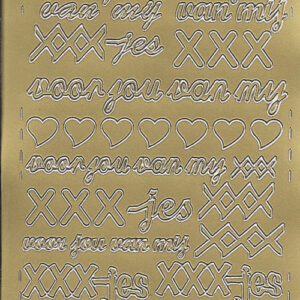 van my van my
XXX-jes XXX
voor jou van my
voor jou van my XXX
XXX jes XXX
voor jou van my XXX
XXX-jes XXX-jes